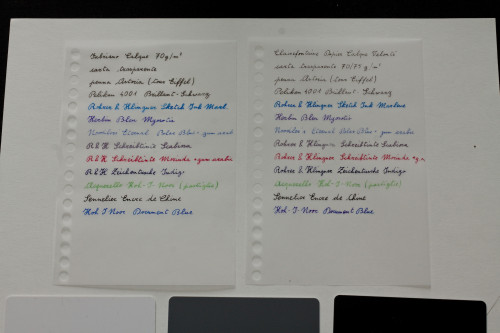 Fabriano Calque 70g/m²
carta trasparente
penna Aurora (Tour Eiffel)
Pelikan 4001 Brillant-Schwarz
Rohrer & Klingner Sketch Ink Marl.
Herbin Bleu Myosotis
Bleu + gum arab
R & K Schreibtinte Scabiosa
R & K Schreibtinte +gum arabic
R & K Zeichentusche Indigo
Acquerello Koh-I-Noor (pastiglia)
Sennelier Encre de Chine
Koh-I-Noor Document Blue
Clairefontaine Papier Calque Velouté
carta trasparente 70/75 g/m²
penna Aurora (Tour Eiffel)
Pelikan 4001 Brillant-Schwarz
Rohrer & Klingner Sketch Ink Marlene
Herbin Bleu Myosotis
Bleu + gum arab
Rohrer & Klingner Schreibtinte Scabiosa
Rohrer & Klingner Schreibtinte +gum a
Rohrer & Klingner Zeichentusche Indigo
Acquerello Koh-I-Noor (pastiglia)
Sennelier Encre de Chine
Koh-I-Noor Document Blue